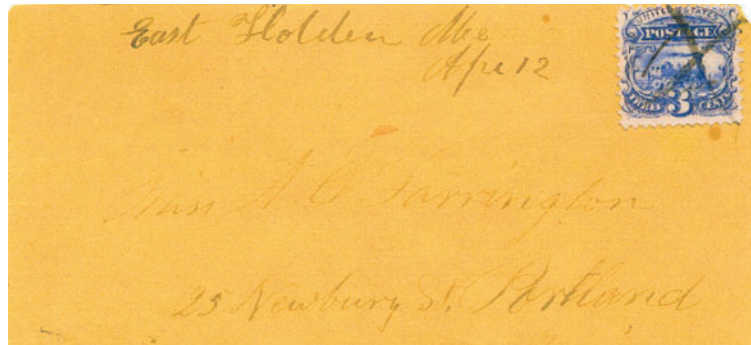 East Holden Me
Apr 12
UNITED STATES
POSTAGE
THREE 3 CENTS
Miss A. C. Farrington
25 Newbury St. Portland